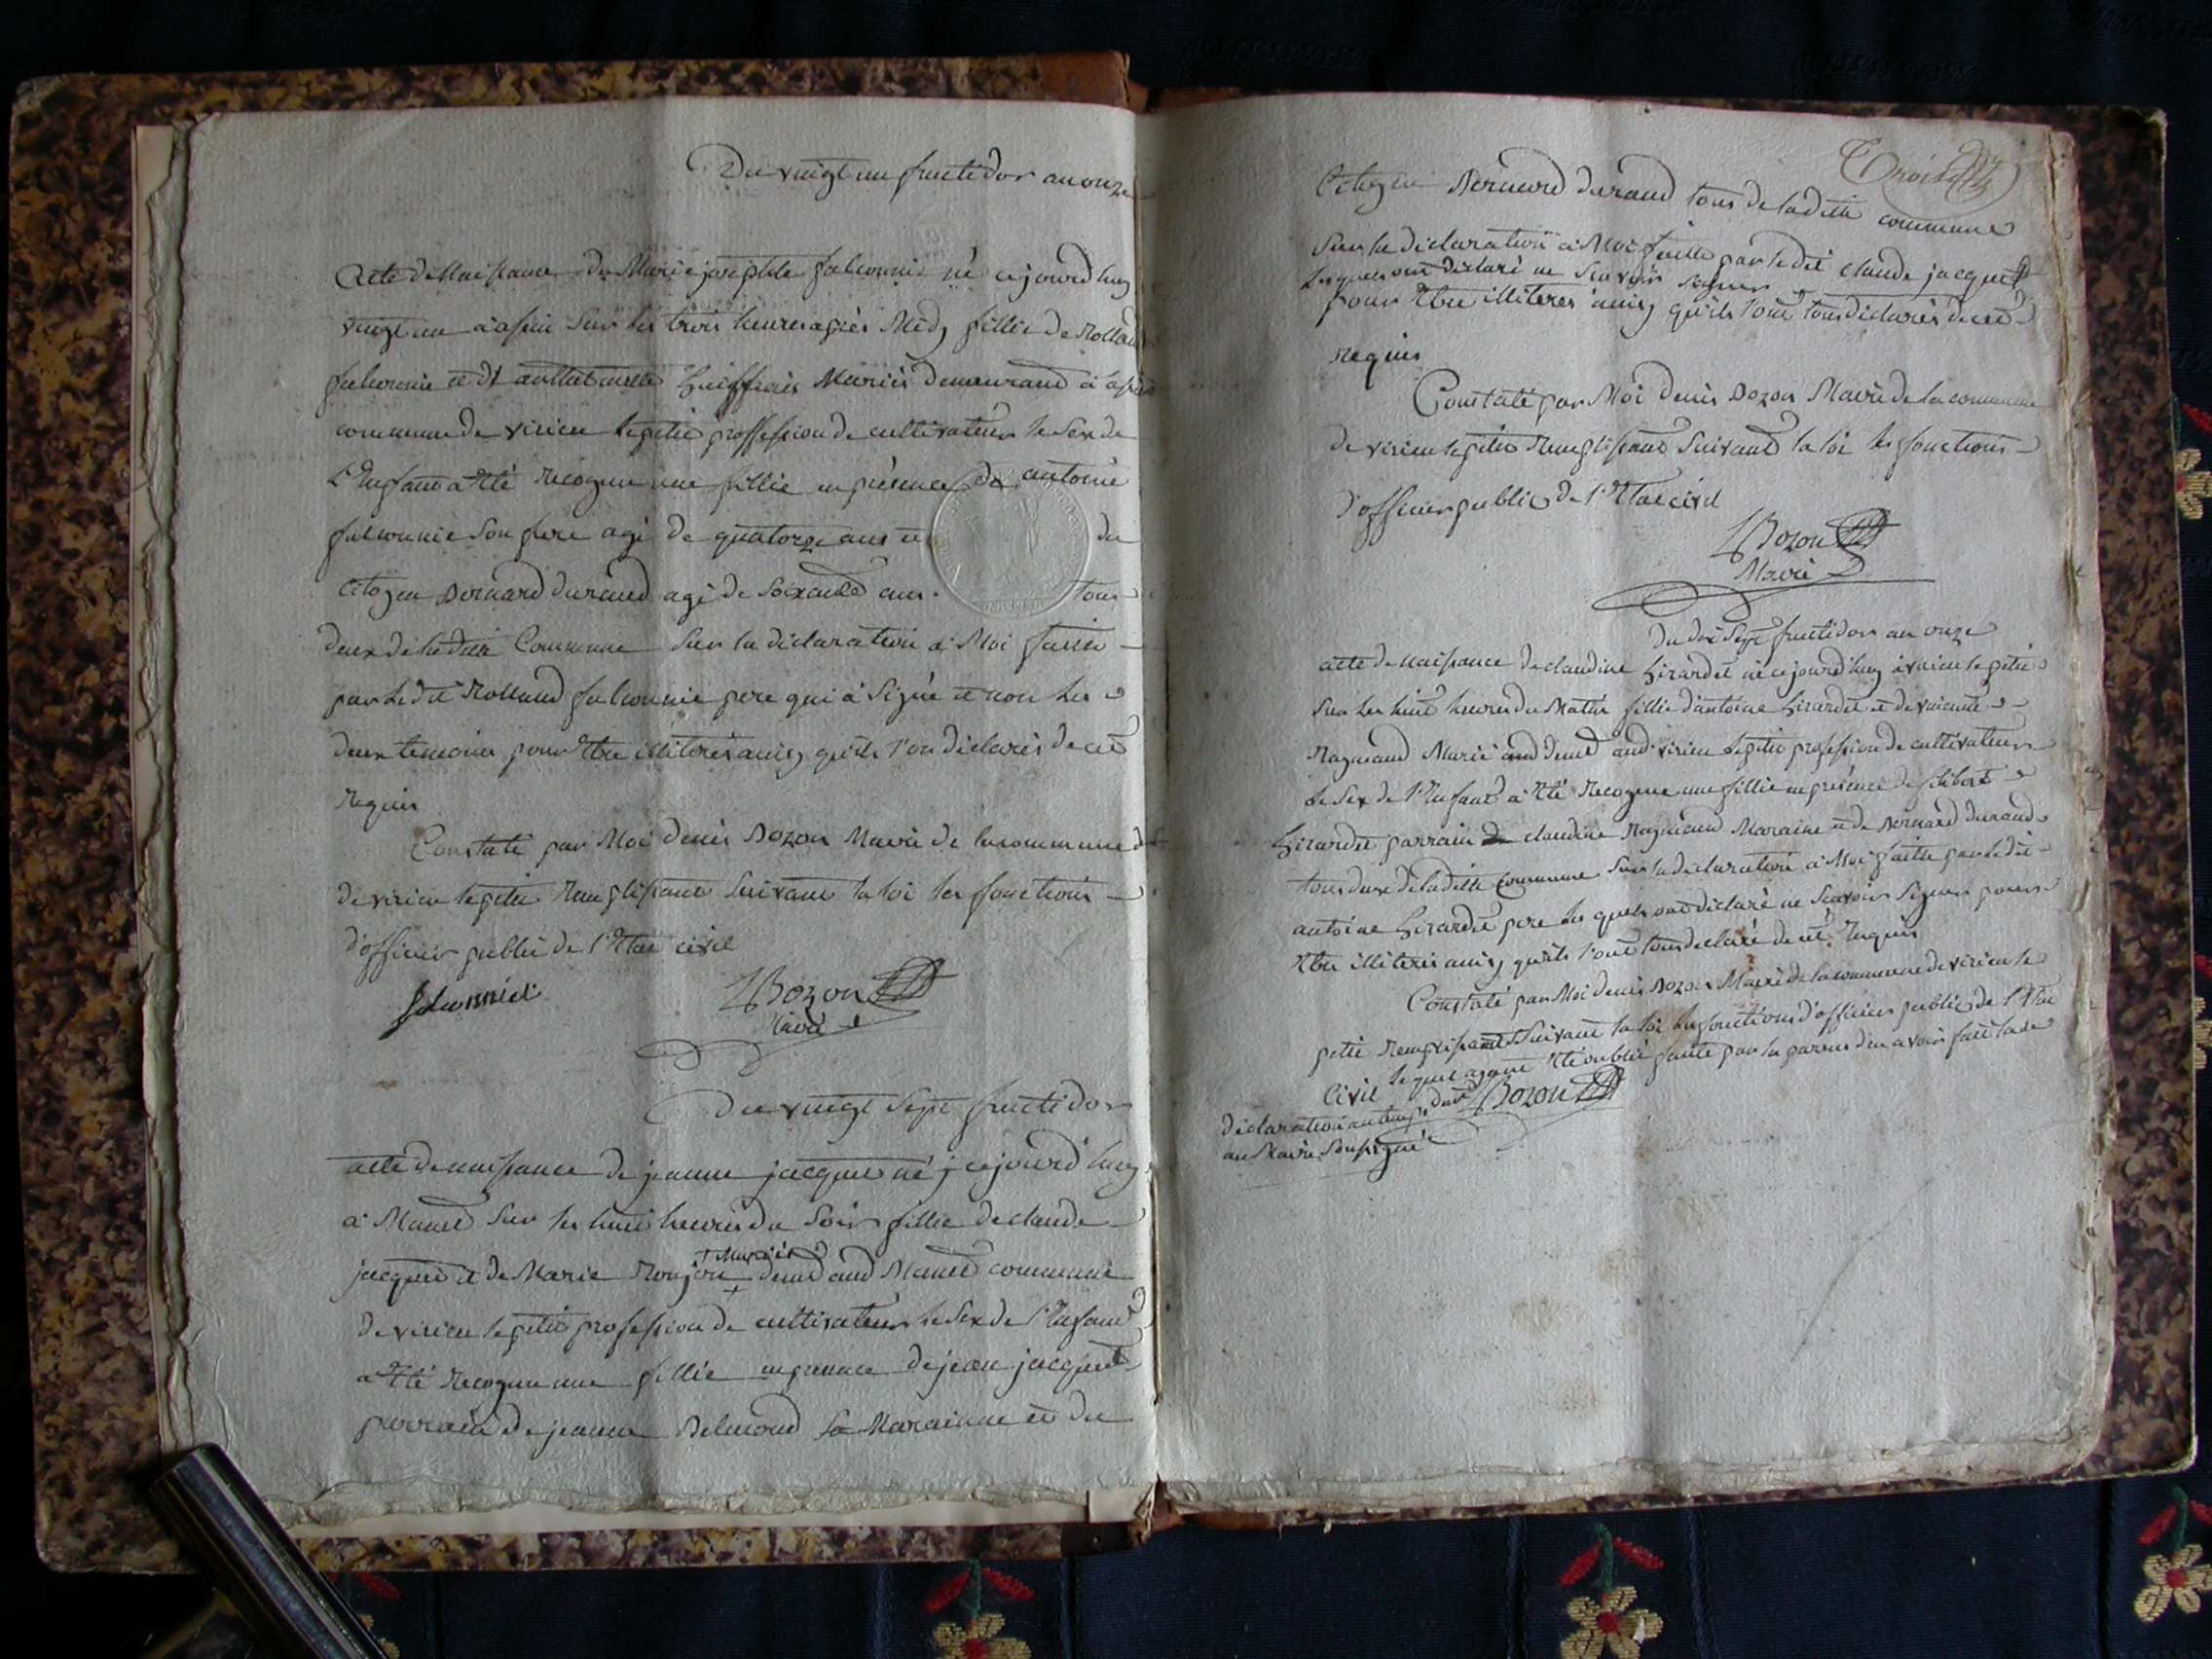 Du vingt un fructidor an onze
Acte de Naissance de Marie josephte falconnie né cejourd huy
vingt un a asin Sur les trois heures après Midy fillie de Rolland
falconnie et d'
commune de virieu le petit proffession de cultivateur le Sex de
l'Enfant a Eté Recognu une fillie en présence de antoine
falconnie Son frere agé de quatorze ans et du
Citoyen Bernard durand agé de Soixante ans tous
deux de la ditte Commune Sur la déclaration a Moi faitte
par le dit Rolland falconnie pere qui a Signé et non les
deux temoins pour Etre illiterés ainsy qu'ils l'on déclarés de ce
Requis
Constaté par Moi denis Bozon Maire de la commune
de virieu le petit Remplissant Suivant la loi les fonctions
d'officier public de l'Etat civil
falconnié
DBozon
Maire
Du vingt Sept fructidor
acte de naissance de jeanne jacquet né cejourd huy
a Munet Sur les huit heures du Soir fillie de claude
jacquet et de Marie Roujon Mariés demt aud Munet commune
de virieu le petit profession de cultivateur le Sex de l'Enfant
a Eté Recognu une fillie en presance de jean jacquet
parrain de jeanne Belmond Sa Marainne et du
Troisie
Citoyen Bernard durand tous de la ditte commune
Sur la déclaration a Moi faitte par le dit claude jacquet
lesquels ont déclaré ne Scavoir Signer
pour Etre illiteres ainsy qu'ils l'ont tous déclarés de ce
Requis
Constaté par Moi denis Bozon Maire de la commune
de virieu le petit Remplissant Suivant la loi les fonctions
d'officier public de l'Etat civil
DBozon
Maire
Du dix Sept fructidor an onze
acte de naissance de claudine Girardet né cejourd'huy a virieu le petit
Sur les huit heures du Matin fillie d'antoine Girardet et de
Raymand Marié demt aud virieu le petit profession de cultivateur
le Sex de l'Enfant a Eté Recognu une fillie en présence de filibert
Girardet parrain de claudine Raymand Maraine et de Bernard durand
tous deux de la ditte Commune Sur la declaration a Moi faitte par le dit
antoine Girardet pere les quels ont déclaré ne Scavoir Signer pour
Etre illiteres ainsy qu'ils l'ont tous declaré de ce Requis
Constaté par Moi denis Bozon Maire de la commune de virieu le
petit Remplissant Suivant la loi les fonctions d'officier public de l'Etat
Civil lequel ayant Eté oublié faute par les parens d'en avoir fait la
DBozon
déclaration au temps
au Maire Soussigné